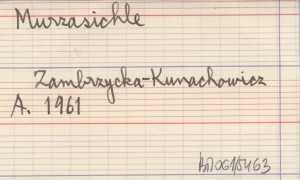 Murzasichle
Zambrzycka-Kunachowicz
A. 1961